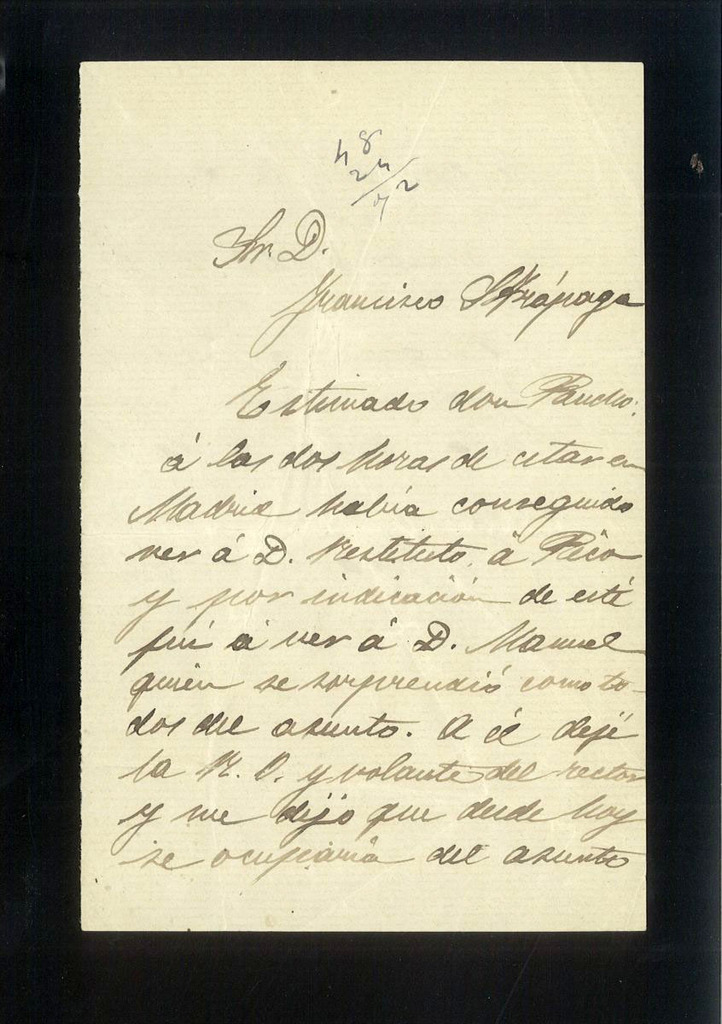 48
24
/72
Sr. D.
Francisco Arrápaga
Estimado don Pancho:
á las dos horas de estar en
Madrid había conseguido
ver á D. Restituto, á Pico
y por indicación de esté
fuí á ver á D. Manuel
quién se sorprendió como to-
dos del asunto. A él dejé
la R. O. y volante del rector
y me dijo que desde hoy
se ocuparía del asunto